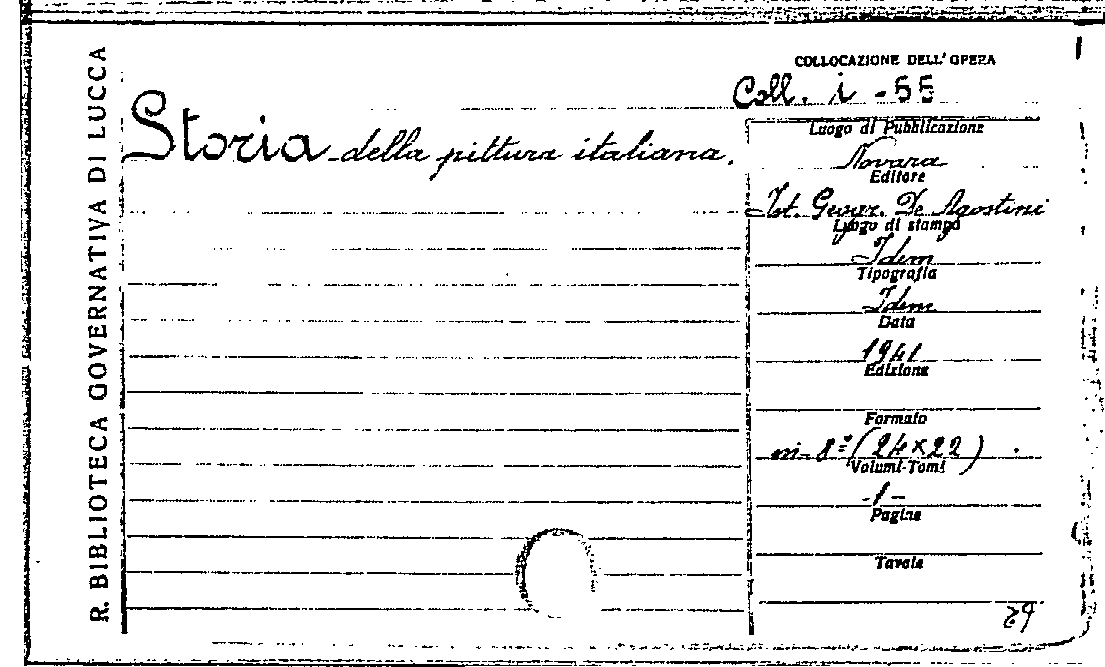 R. BIBLIOTECA GOVERNATIVA DI LUCCA
Storia della pittura italiana.
COLLOCAZIONE DELL'OPERA
Coll. i - 55
Luogo di Pubblicazione
Novara
Editore
Ist. Geogr. De Agostini
Luogo di stampa
Idem
Tipografia
Idem
Data
1941
Edizione
Formato
in-8º (24×22)
Volumi-Tomi
-1-
Pagine
Tavole